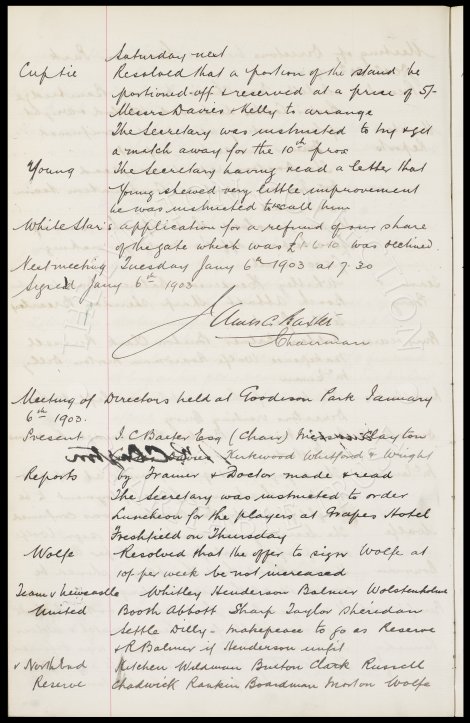 Saturday next
Cup tie Resolved that a portion of the stand be
portioned off & reserved at a price of 5/-
Messrs Davies & Kelly to arrange
The Secretary was instructed to try & get
a match away for the 10th prox
Young The Secretary having read a letter that
Young shewed very little improvement
he was instructed to recall him
White Star's application for a refund of our share
of the gate which was £1.6.10 was declined.
Next meeting Tuesday Jany 6th 1903 at 7.30
Signed Jany 6th 1903
James C. Baxter
Chairman
Meeting of Directors held at Goodison Park January
6th 1903.
Present J. C. Baxter Esq (Chair) Clayton
Davies Kirkwood Whitford & Wright
Reports by Trainer & Doctor made & read
The Secretary was instructed to order
Luncheon for the players at Grapes Hotel
Freshfield on Thursday
Wolfe Resolved that the offer to sign Wolfe at
10/- per week be not increased
Team v Newcastle Whitley Henderson Balmer Wolstenholme
United Booth Abbott Sharp Taylor Sheridan
Settle Dilly - Makepeace to go as Reserve
& R Balmer if Henderson unfit
v North End Kitchen Wildman Burton Clark Russell
Reserve Chadwick Rankin Boardman Morton Wolfe